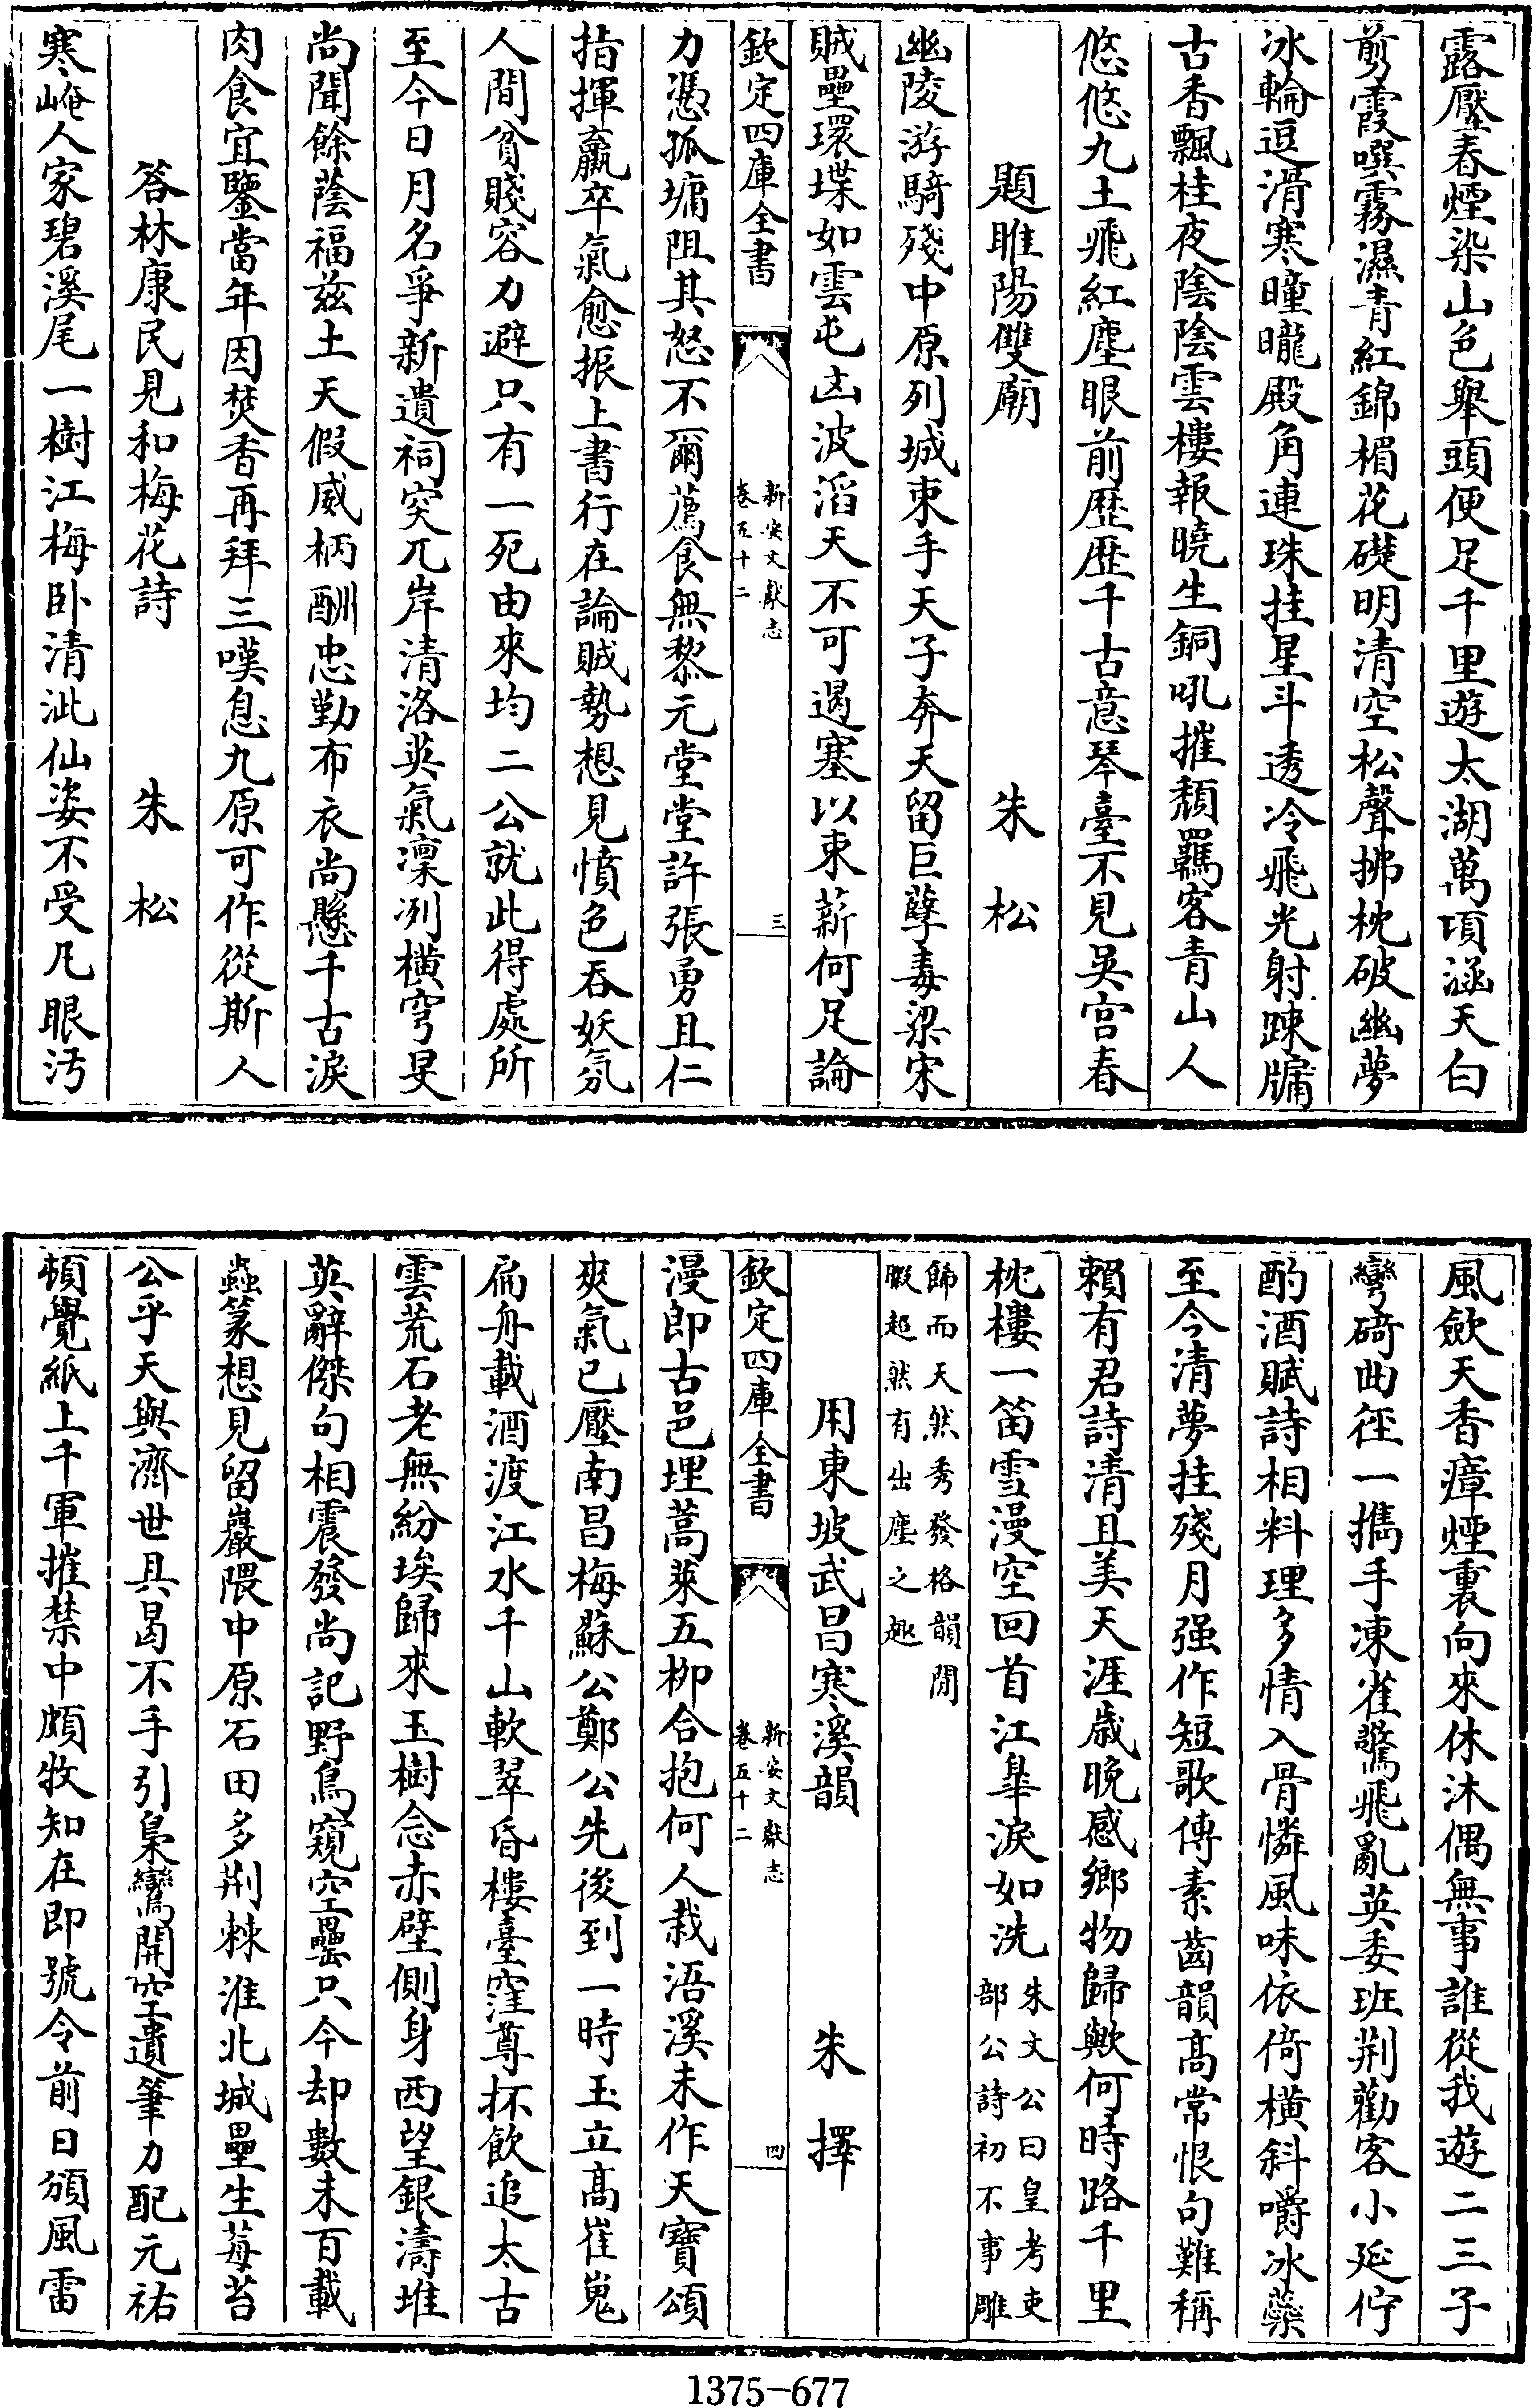 露壓春煙染山色舉頭便足千里遊太湖萬頃涵天白
剪霞噀霧濕青紅錦楣花礎明清空松聲拂枕破幽夢
冰輪逗滑寒曈曨殿角連珠挂星斗透冷飛光射疎牖
古香飄桂夜陰陰雲樓報曉生銅吼摧頹羈客青山人
悠悠九土飛紅塵眼前歷歷千古意琴臺不見吳宫春
題睢陽雙廟 朱松
幽陵游騎殘中原列城束手天子奔天留巨孽毒梁宋
賊壘環堞如雲屯凶波滔天不可遏塞以束薪何足論
欽定四庫全書 新安文獻志 卷五十二 三
力憑孤墉阻其怒不爾薦食無黎元堂堂許張勇且仁
指揮羸卒氣愈振上書行在論賊勢想見憤色吞妖氛
人間貧賤容力避只有一死由來均二公就此得處所
至今日月名爭新遺祠突兀岸清洛英氣凜冽横穹旻
尚聞餘蔭福兹土天假威柄酬忠勤布衣尚懸千古淚
肉食宜鑒當年因焚香再拜三嘆息九原可作從斯人
答林康民見和梅花詩 朱松
寒崦人家碧溪尾一樹江梅卧清泚仙姿不受凡眼汚
風歛天香瘴煙裏向來休沐偶無事誰從我遊二三子
彎碕曲徑一攜手凍雀驚飛亂英委班荆勸客小延佇
酌酒賦詩相料理多情入骨憐風味依倚橫斜嚼冰蘂
至今清夢挂殘月强作短歌傳素齒韻高常恨句難稱
賴有君詩清且美天涯歲晚感鄉物歸歟何時路千里
枕樓一笛雪漫空回首江臯淚如洗 朱文公曰皇考吏部公詩初不事雕
飾而天然秀發格韻閒暇超然有出塵之趣
用東坡武昌寒溪韻 朱擇
欽定四庫全書 新安文獻志 卷五十二 四
漫郎古邑埋蒿萊五柳合抱何人栽浯溪未作天寶頌
爽氣已壓南昌梅蘇公鄭公先後到一時玉立高崔嵬
扁舟載酒渡江水千山軟翠昏樓臺窪尊抔飲追太古
雲荒石老無紛埃歸來玉樹念赤壁側身西望銀濤堆
英辭傑句相震發尚記野鳥窺空罍只今却數未百載
蟲篆想見留巖隈中原石田多荆棘淮北城壘生莓苔
公乎天與濟世具曷不手引梟鸞開空遺筆力配元祐
頓覺紙上千軍摧禁中頗牧知在即號令前日頒風雷
1375-677